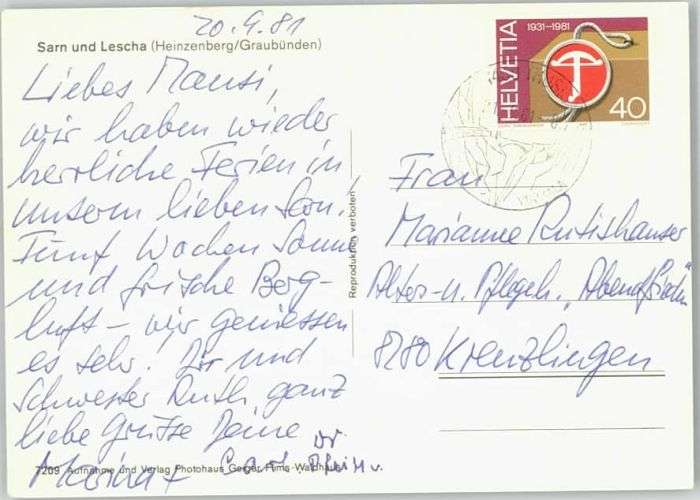 20.9.81
Sarn und Lescha (Heinzenberg/Graubünden)
Liebes Mausi,
wir haben wieder
herrliche Ferien in
unserm lieben Sarn!
Fünf Wochen Sonne
und frische Berg-
luft – wir geniessen
es sehr! Dir und
Schwester Ruth ganz
liebe Grüsse Deine
7209 Aufnahme und Verlag Photohaus Geiger, Flims-Waldhaus
Reproduktion verboten
HELVETIA
1931-1981
40
Frau
Marianne Rutishauser
Alters- u. Pflegeh. "Abendfrieden"
8280 Kreuzlingen